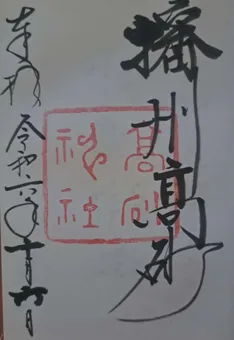 播州高砂
高砂
神社
奉拝
令和六年十月六日